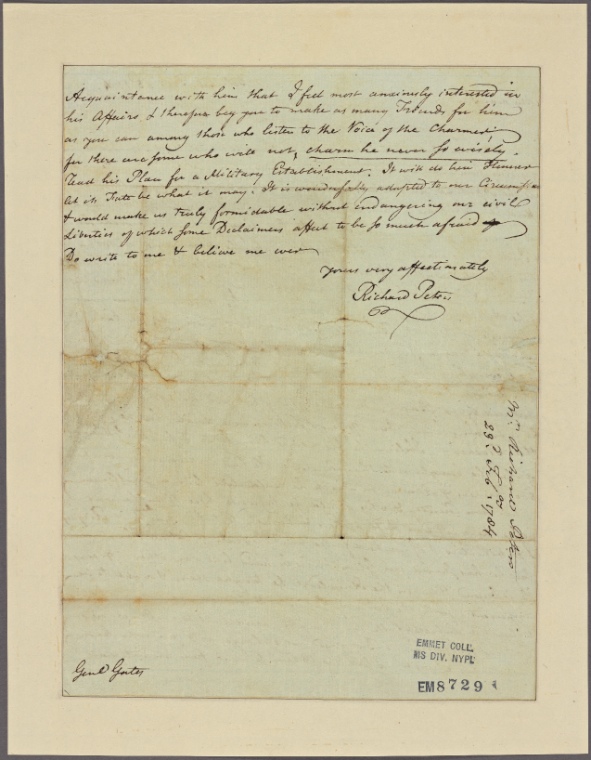 Acquaintance with him that I feel most anxiously interested in
his Affairs, & therefore beg you to make as many Friends for him
as you can among those who listen to the Voice of the Charmer,
for there are some who will not, charm he never so wisely.
Read his Plan for a Military Establishment. It will do him Honour
let its Fate be what it may. It is wonderfully adapted to our Circumstan
& would make us truly formidable without endangering our civil
Liberties of which some Declaimers affect to be so much afraid
Do write to me & believe me ever
yours very affectionately
Richard Peters
Mr. Richard Peters
29th Feb: 1784
Genl Gates
EMMET COLL.
MS DIV. NYPL
EM8729